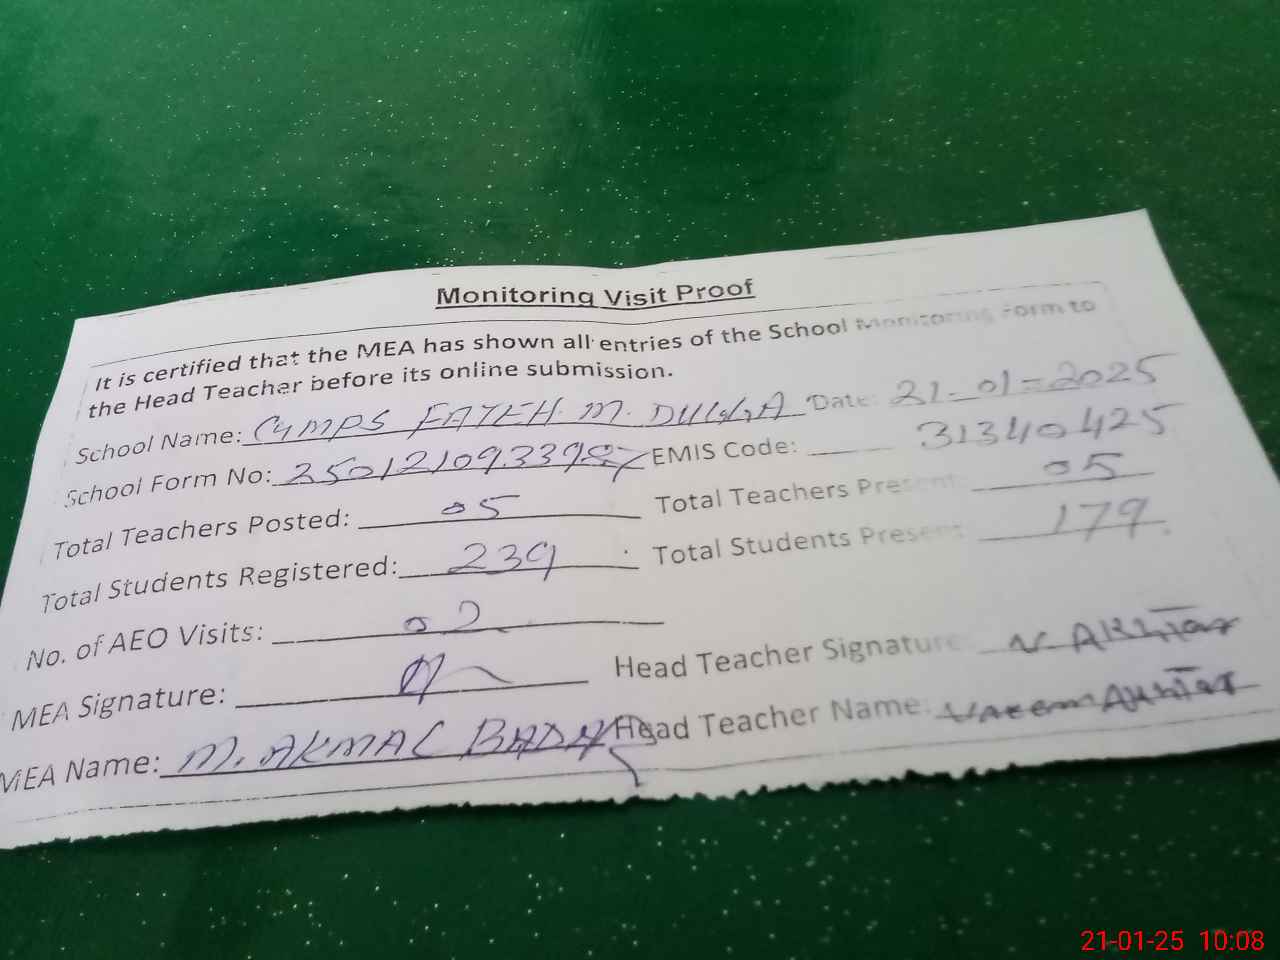 Monitoring Visit Proof
It is certified that the MEA has shown all entries of the School Monitoring Form to
the Head Teacher before its online submission.
School Name: GMPS FATEH. M. DULLA Date: 21-01-2025
School Form No: EMIS Code: 31340425
Total Teachers Posted: 05 Total Teachers Present: 05
Total Students Registered: 239 Total Students Present: 179
No. of AEO Visits: 02
MEA Signature: Head Teacher Signature: N. Akhtar
MEA Name: M. AKMAL Head Teacher Name: Akhtar
21-01-25 10:08